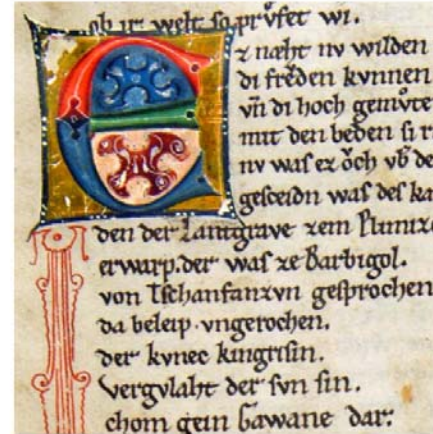 ob ir welt so prvͦfet wi.
Ez næht nv wilden
di frěden kvnnen
vn̄ di hoch gemvͦte
mit den beden ſi r
nv waſ ez oͮch vb̄ de
geſceidn waſ deſ ka
den der Lantgrave zem Plimizo
erwarp. der waſ ze Barbigol.
von Tſchanfanzvn geſprochen
da beleip. vngerochen.
der kvnec kingriſin.
Vergvlaht der ſvn ſin.
chom gein Gawane dar: